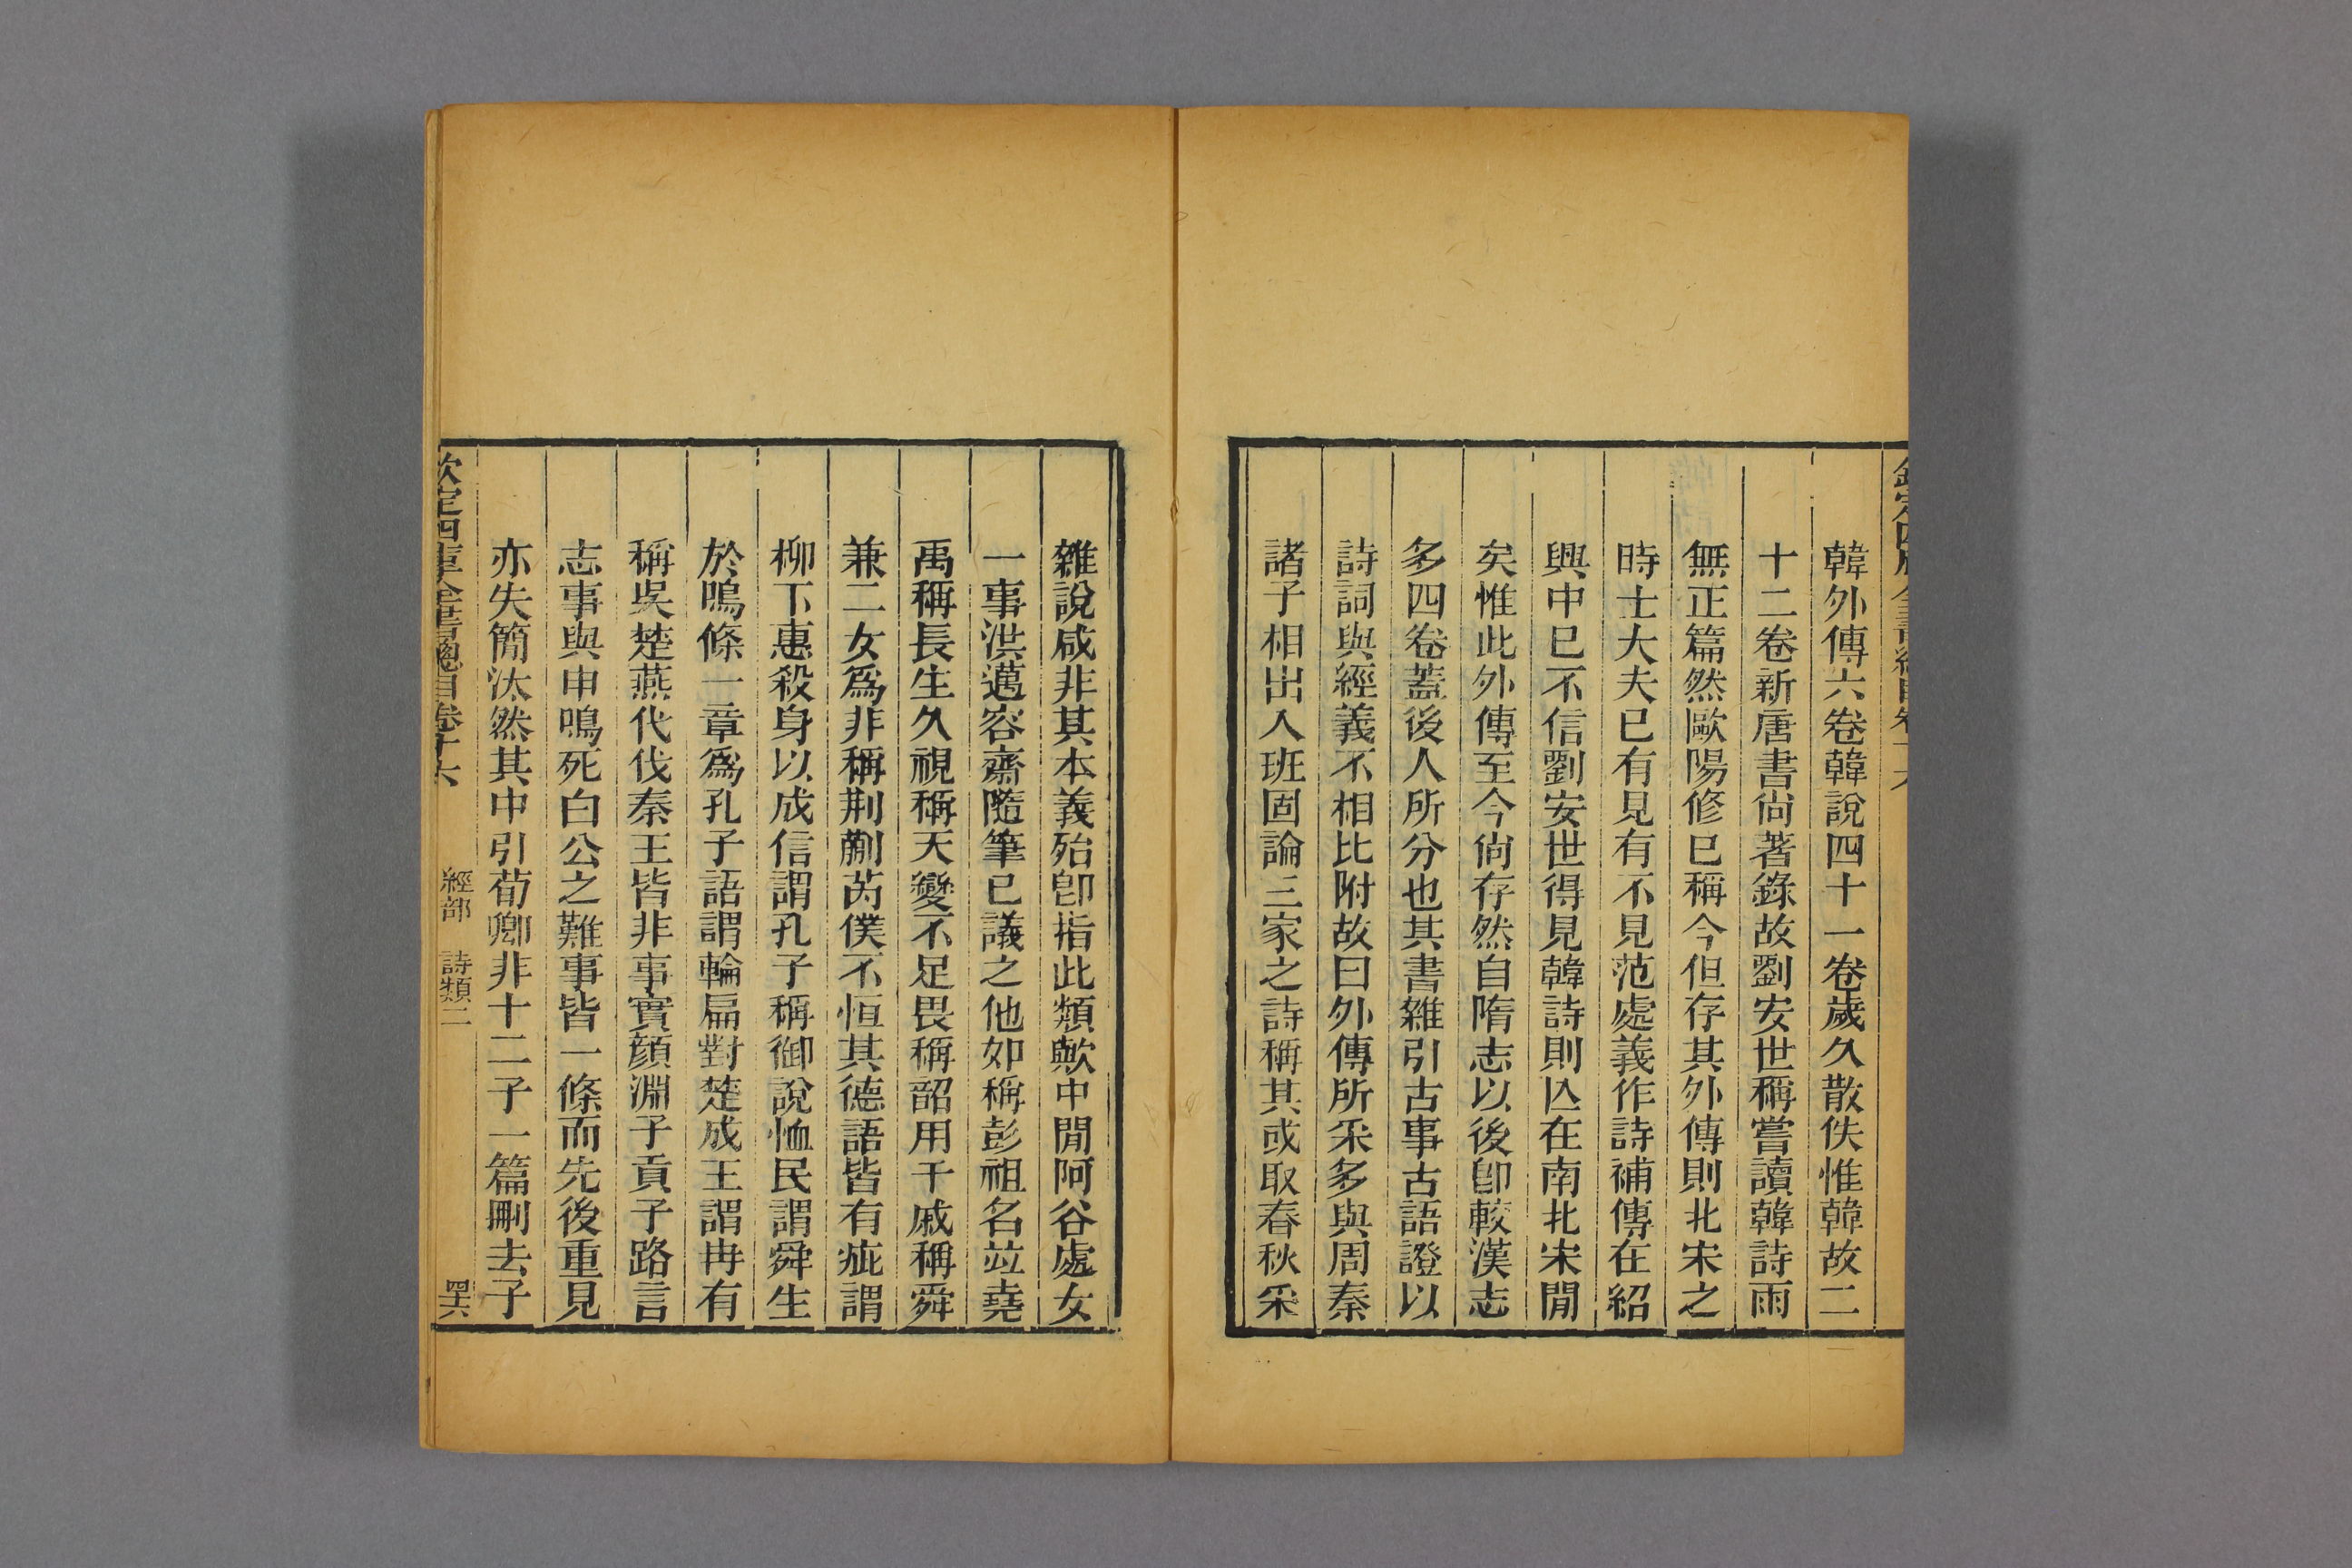 韓外傳六卷韓說四十一卷歲久散佚惟韓故二
十二卷新唐書尙著錄故劉安世稱嘗讀韓詩雨
無正篇然歐陽修已稱今但存其外傳則北宋之
時士大夫已有見有不見范處義作詩補傳在紹
興中已不信劉安世得見韓詩則亾在南北宋閒
矣惟此外傳至今尙存然自隋志以後卽較漢志
多四卷蓋後人所分也其書雜引古事古語證以
詩詞與經義不相比附故曰外傳所采多與周秦
諸子相出入班固論三家之詩稱其或取春秋采
雜說咸非其本義殆卽指此類歟中閒阿谷處女
一事洪邁容齋隨筆已議之他如稱彭祖名竝堯
禹稱長生久視稱天變不足畏稱韶用干戚稱舜
兼二女爲非稱荆蒯芮僕不恒其德語皆有疵謂
柳下惠殺身以成信謂孔子稱御說恤民謂舜生
於鳴條一章爲孔子語謂輪扁對楚成王謂冉有
稱吳楚燕代伐秦王皆非事實顔淵子貢子路言
志事與申鳴死白公之難事皆一條而先後重見
亦失簡汰然其中引荀卿非十二子一篇刪去子
欽定四庫全書總目卷十六 經部 詩類二 四六